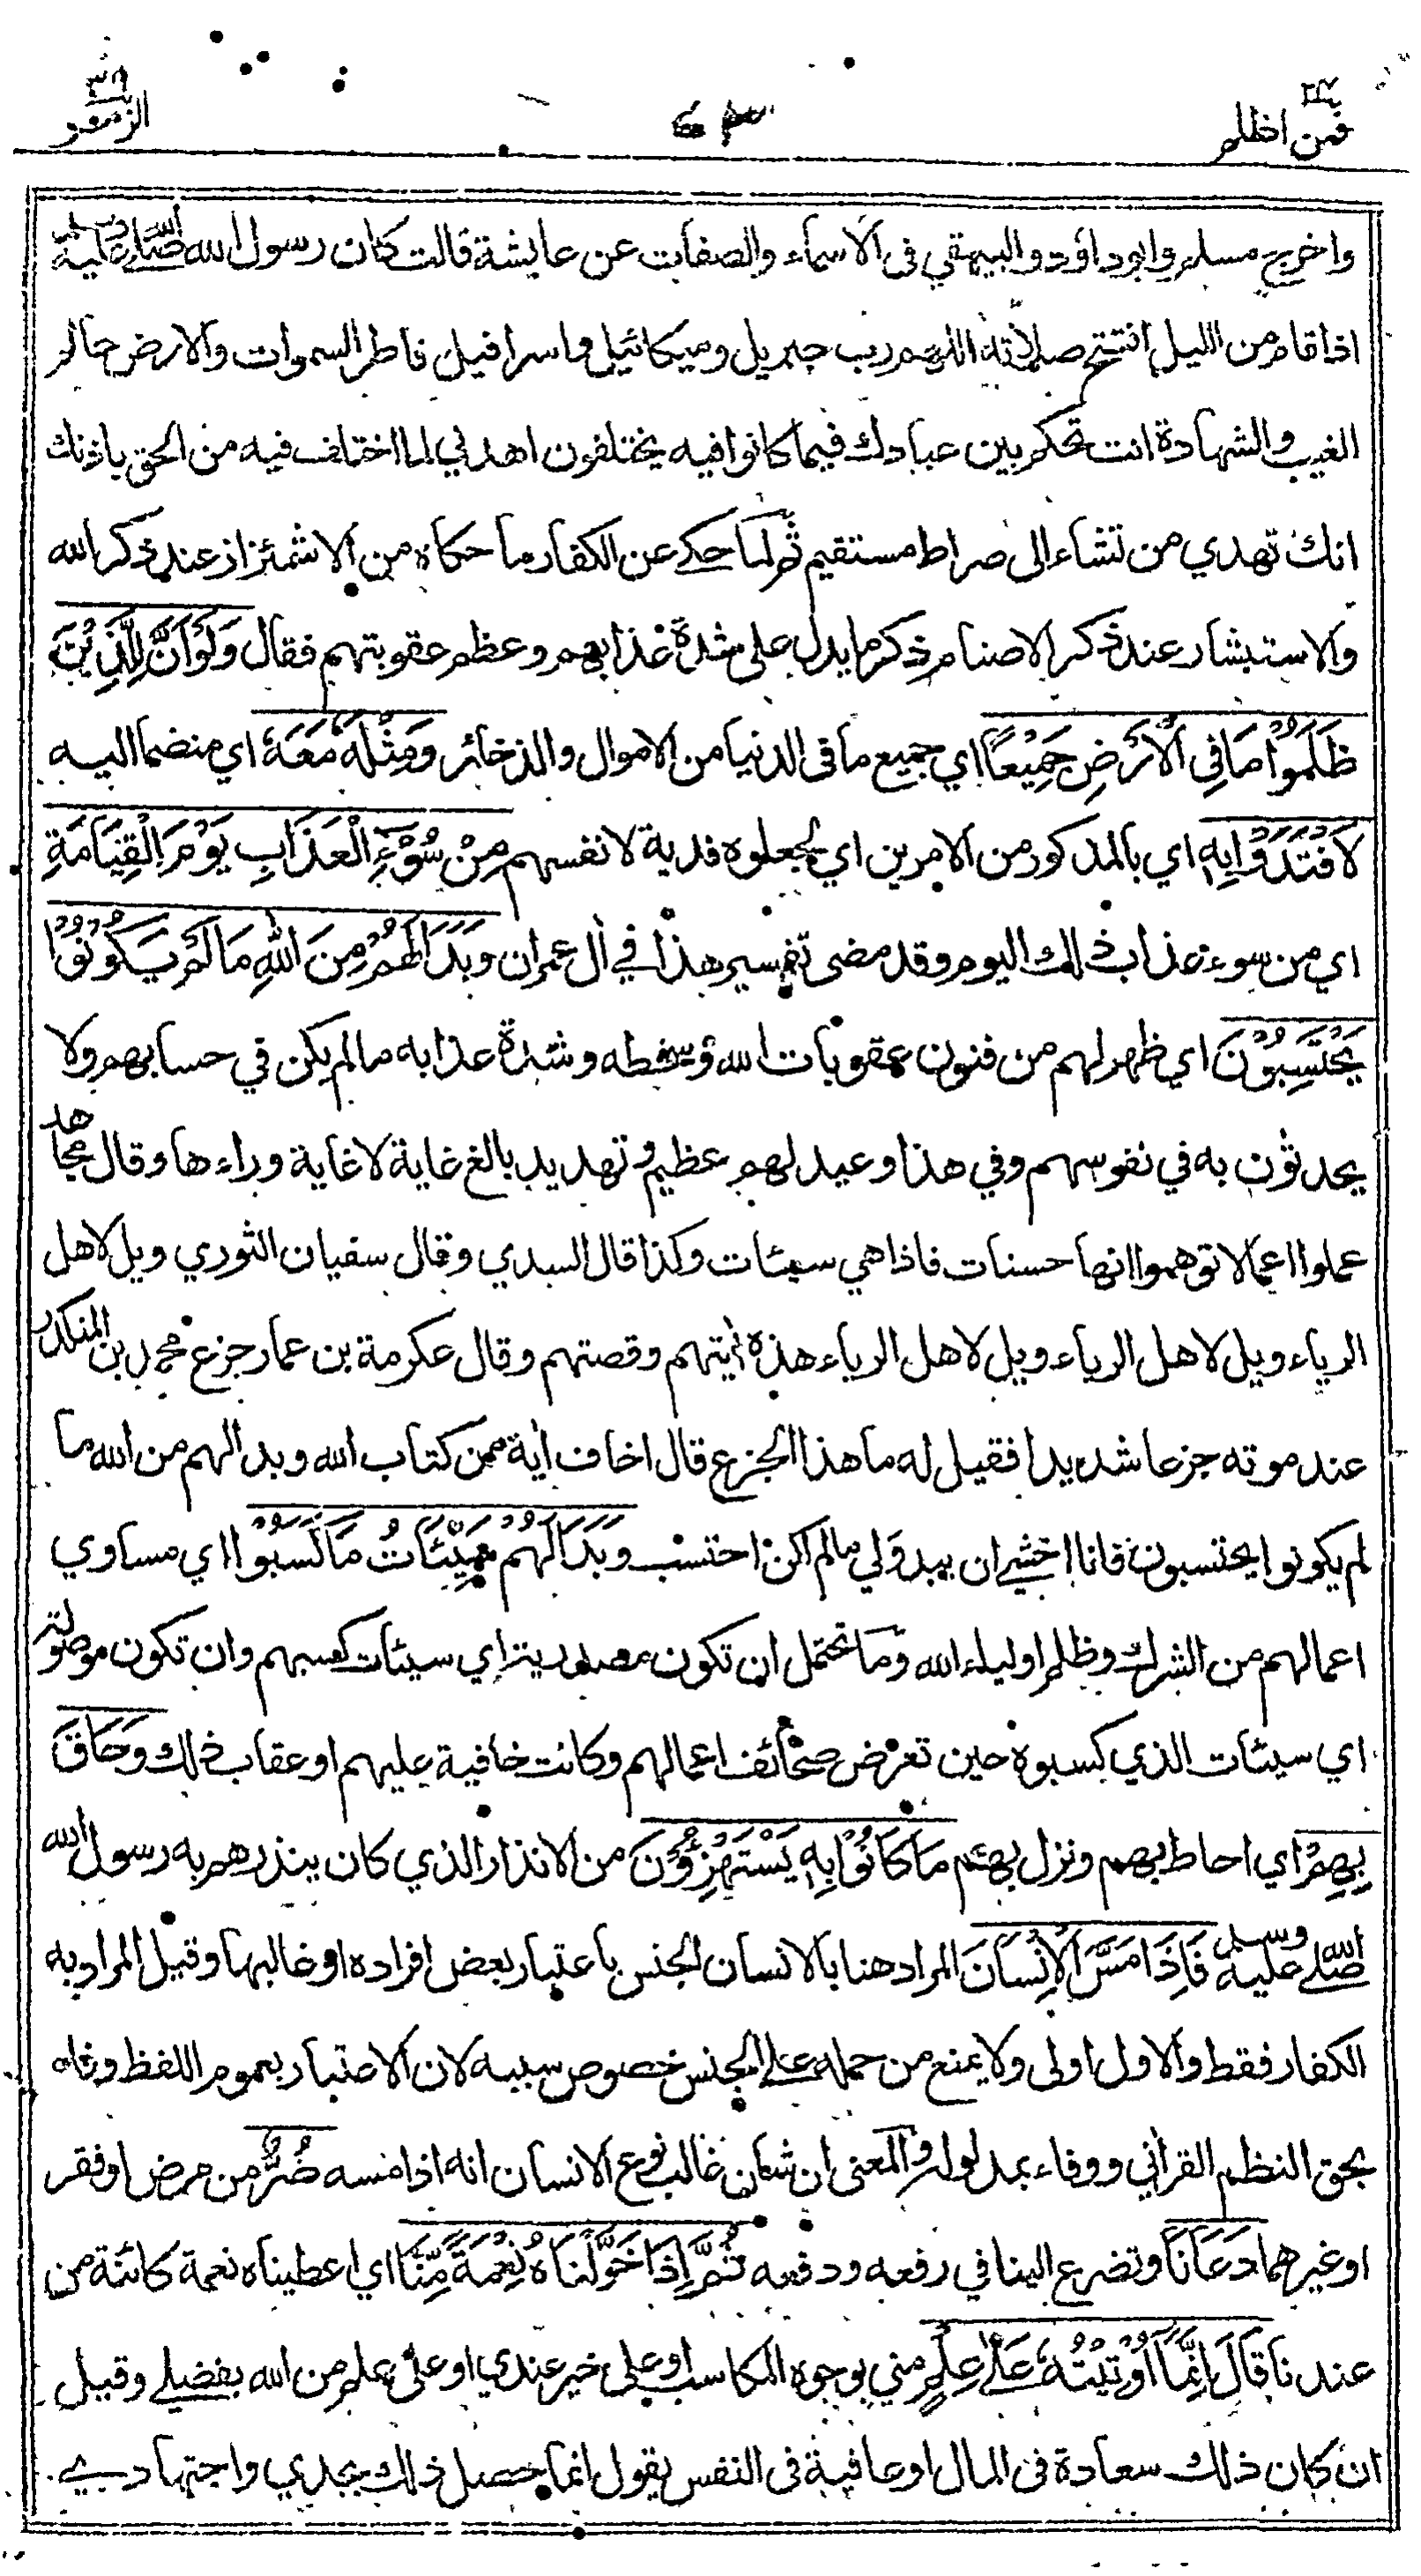 فمن اظلم ٢٤
الزمر ٣٩
واخرج مسلم وابو داود والبيهقي فى الاسماء والصفات عن عايشة قالت كان رسول الله صلى الله عليه وسلم
اذا قام من الليل افتتح صلاته اللهم رب جبريل وميكائيل واسرافيل فاطر السموات والارض عالم
الغيب والشهادة انت تحكم بين عبادك فيما كانوا فيه يختلفون اهدني لما اختلف فيه من الحق باذنك
انك تهدي من تشاء الى صراط مستقيم ثم لما حكے عن الكفار ما حكاه من الاشمئزاز عند ذكر الله
والاستبشار عند ذكر الاصنام ذكر ما يدل على شدة عذابهم وعظم عقوبتهم فقال وَلَوْ اَنَّ لِلَّذِيْنَ
ظَلَمُوْا مَا فِي الْاَرْضِ جَمِيْعًا اي جميع ما في الدنيا من الاموال والذخائر وَمِثْلَهٗ مَعَهٗ اي منضما اليه
لَافْتَدَوْا بِهٖ اي بالمذكور من الامرين اي لجعلوه فدية لانفسهم مِنْ سُوْٓءِ الْعَذَابِ يَوْمَ الْقِيَامَةِ
اي من سوء عذاب ذلك اليوم وقد مضى تفسير هذا في اٰل عمران وَبَدَا لَهُمْ مِنَ اللّٰهِ مَا لَمْ يَكُوْنُوْا
يَحْتَسِبُوْنَ اي ظهر لهم من فنون عقوبات الله وسخطه وشدة عذابه ما لم يكن في حسابهم ولا
يحدثون به في نفوسهم وفي هذا وعيد لهم عظيم وتهديد بالغ غاية لا غاية وراءها وقال مجاهد
عملوا اعمالا توهموا انها حسنات فاذا هي سيئات وكذا قال السدي وقال سفيان الثوري ويل لاهل
الرياء ويل لاهل الرياء ويل لاهل الرياء هذه اٰيتهم وقصتهم وقال عكرمة بن عمار جزع محمد بن المنكدر
عند موته جزعا شديدا فقيل له ما هذا الجزع قال اخاف اٰية من كتاب الله وبدا لهم من الله ما
لم يكونوا يحتسبون فانا اخشے ان يبدو لي ما لم اكن احتسب وَبَدَا لَهُمْ سَيِّئَاتُ مَا كَسَبُوْا اي مساوي
اعمالهم من الشرك وظلم اولياء الله وما تحتمل ان تكون مصدرية اي سيئات كسبهم وان تكون موصولة
اي سيئات الذي كسبوه حين تعرض صحائف اعمالهم وكانت خافية عليهم او عقاب ذلك وَحَاقَ
بِهِمْ اي احاط بهم ونزل بهم مَا كَانُوْا بِهٖ يَسْتَهْزِؤُنَ من الانذار الذي كان ينذرهم به رسول الله
صلى الله عليه وسلم فَاِذَا مَسَّ الْاِنْسَانَ المراد هنا بالانسان الجنس باعتبار بعض افراده او غالبها وقيل المراد به
الكفار فقط والاول اولى ولا يمنع من حمله علے الجنس خصوص سببه لان الاعتبار بعموم اللفظ وفاء
بحق النظم القراٰني ووفاء بمدلوله والمعنى ان شان غالب نوع الانسان انه اذا مسه ضُرٌّ من مرض او فقر
او غيرهما دَعَانَا وتضرع الينا في رفعه ودفعه ثُمَّ اِذَا خَوَّلْنَاهُ نِعْمَةً مِّنَّا اي اعطيناه نعمة كائنة من
عندنا قَالَ اِنَّمَا اُوْتِيْتُهٗ عَلٰے عِلْمٍ مني بوجوه المكاسب او على خير عندي او على علم من الله بفضلے وقيل
ان كان ذلك سعادة فى المال او عافية فى النفس يقول انما حصل ذلك بجدي واجتهادي